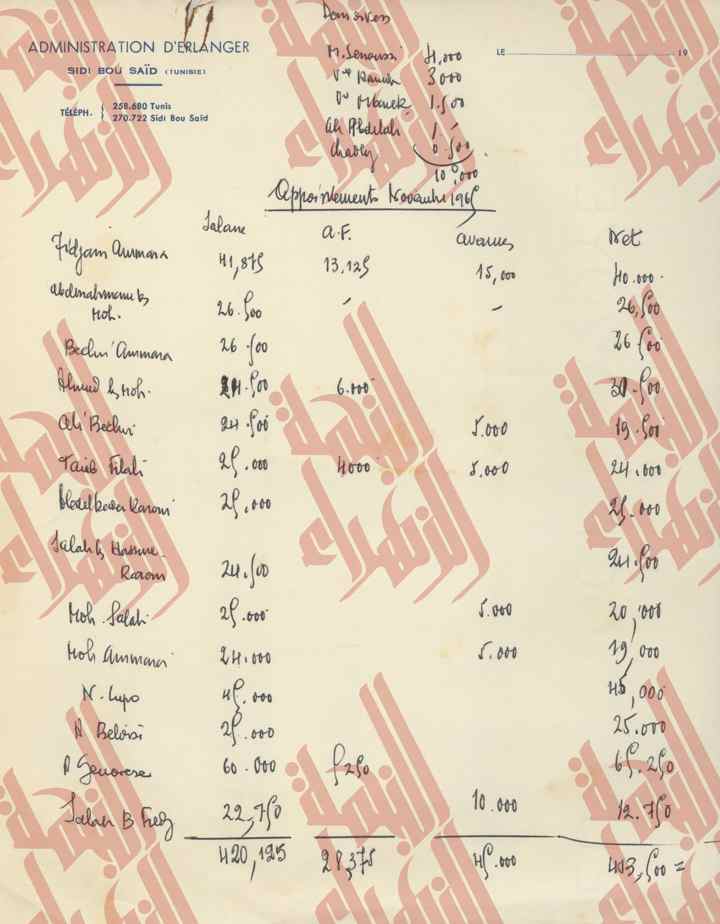 ADMINISTRATION D'ERLANGER
SIDI BOU SAÏD (TUNISIE)
TÉLÉPH. { 258.680 Tunis
270.722 Sidi Bou Saïd
LE 19
M. Senoussi 4,000
Vve 3000
1.500
Ali Abdallah 1
Chadly 0.500
10,000
Appointements Novembre 1965
Salaire A.F. avances Net
Fidjani Ammara 41,875 13,125 15,000 40.000
Abderrahmane b Moh. 26.500 - - 26,500
Bechir Ammara 26.500 26.500
Ahmed b Moh. 24.500 6.000 30.500
Ali Bechir 24.500 5.000 19.500
Taieb Filali 25.000 4000 5,000 24.000
Abdelkader Karoui 25,000 25.000
Salah b Hassine
Karoui 24.500 24.500
Moh. Salah 25.000 5.000 20,000
Moh Ammara 24.000 5.000 19,000
N. Lupo 45.000 45,000
A Beloisi 25.000 25.000
P Genovese 60.000 5250 65.250
Salah B Fredj 22,750 10.000 12.750
420,125 28,375 45.000 403,500 =